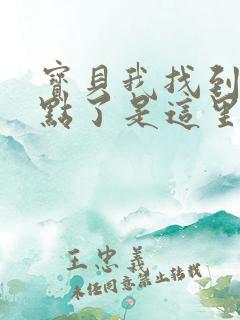 寶貝我找到
點了是這里
王忠義
未经同意禁止转载